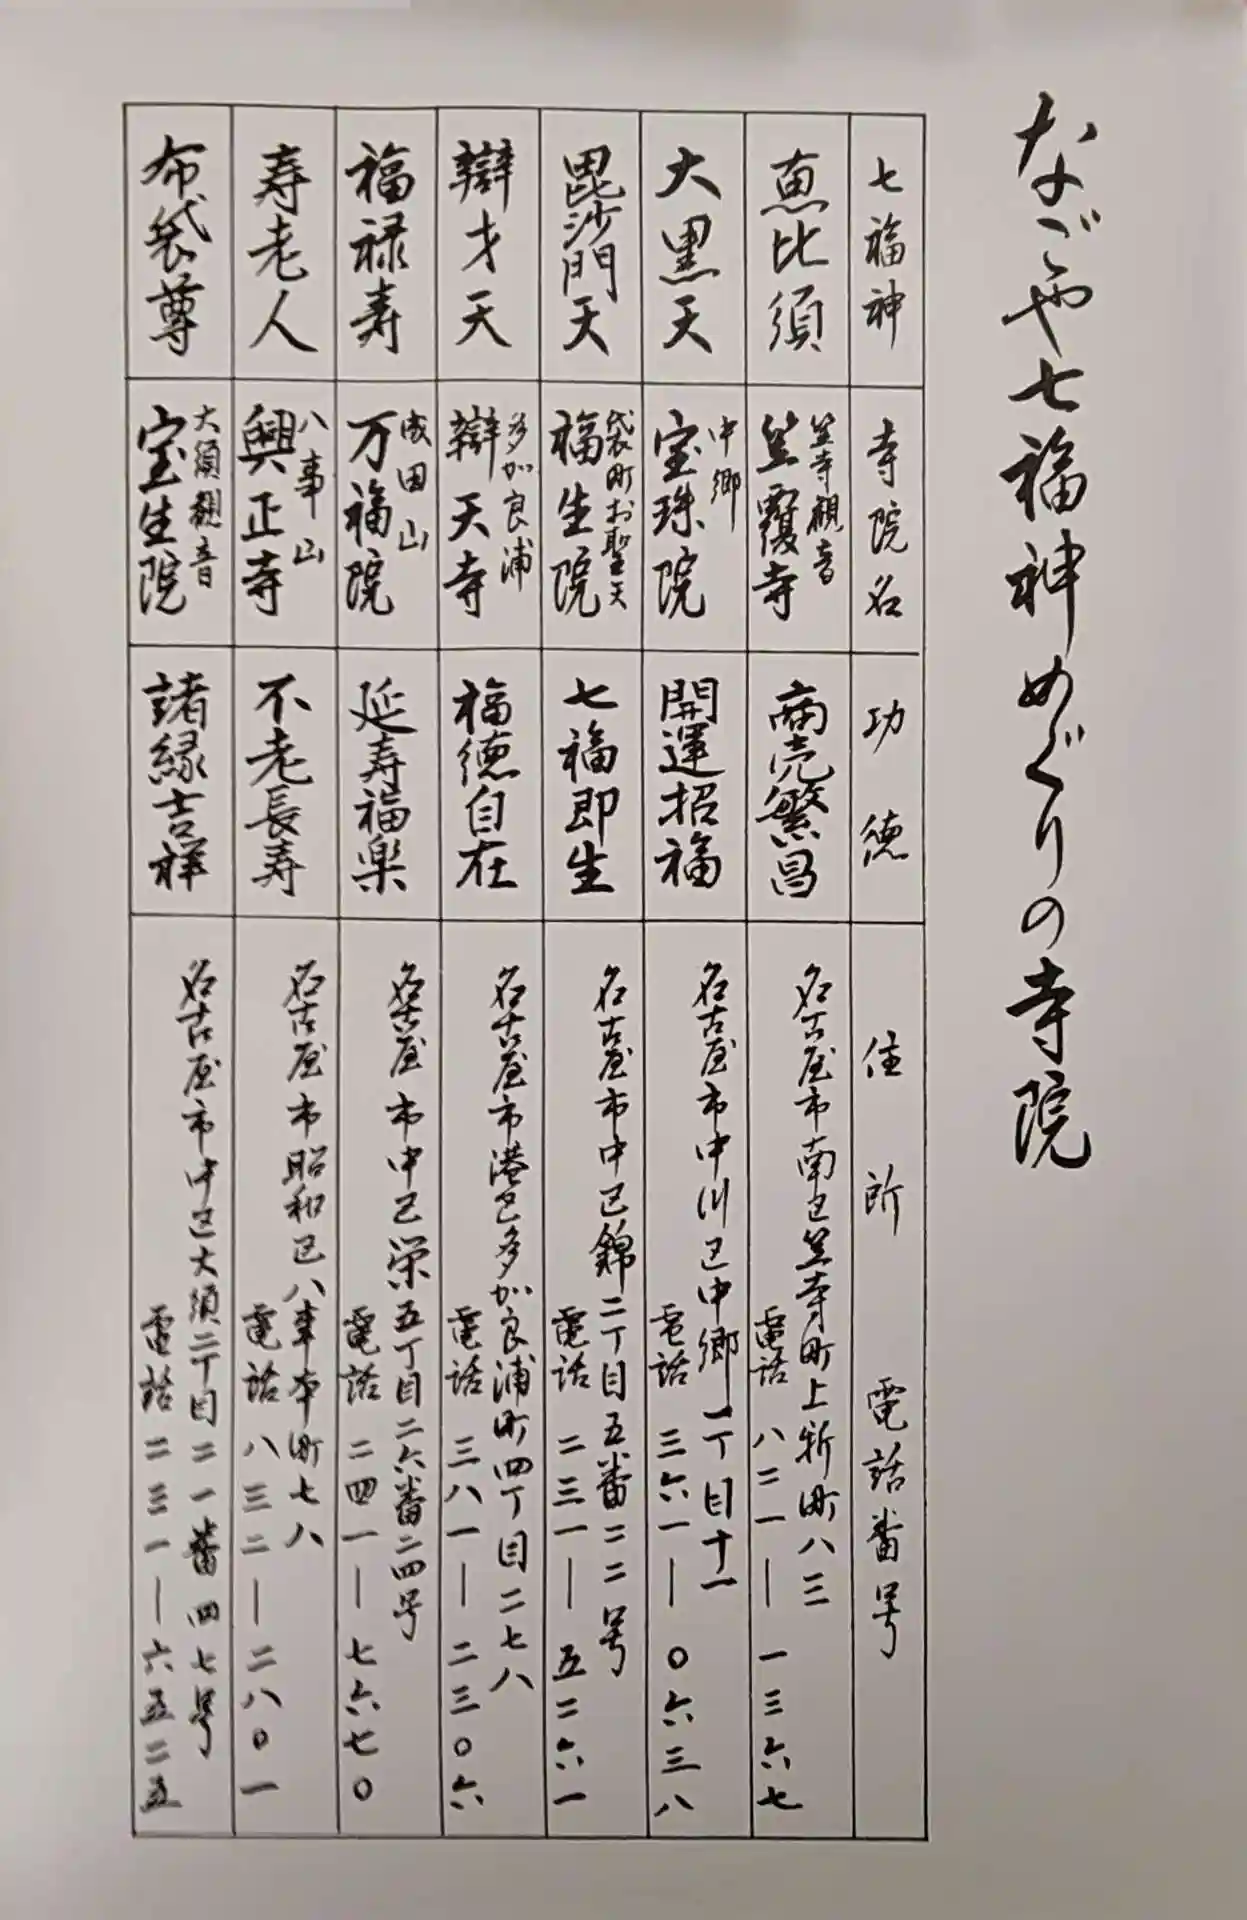 なごや七福神めぐりの寺院
七福神
寺院名
功徳
住所
電話番号
恵比須
笠寺観音
笠覆寺
商売繁昌
名古屋市南区笠寺町上新町八三
電話 八二一―一三六七
大黒天
中郷
宝珠院
開運招福
名古屋市中川区中郷一丁目十一
電話 三六一―〇六三八
毘沙門天
袋町お聖天
福生院
七福即生
名古屋市中区錦二丁目五番二二号
電話 二三一―五二六一
辯才天
多加良浦
辯天寺
福徳自在
名古屋市港区多加良浦町四丁目二七八
電話 三八一―二三〇六
福禄寿
成田山
万福院
延寿福楽
名古屋市中区栄五丁目二六番二四号
電話 二四一―七六七〇
寿老人
八事山
興正寺
不老長寿
名古屋市昭和区八事本町七八
電話 八三二―二八〇一
布袋尊
大須観音
宝生院
諸縁吉祥
名古屋市中区大須二丁目二一番四七号
電話 二三一―六五二五